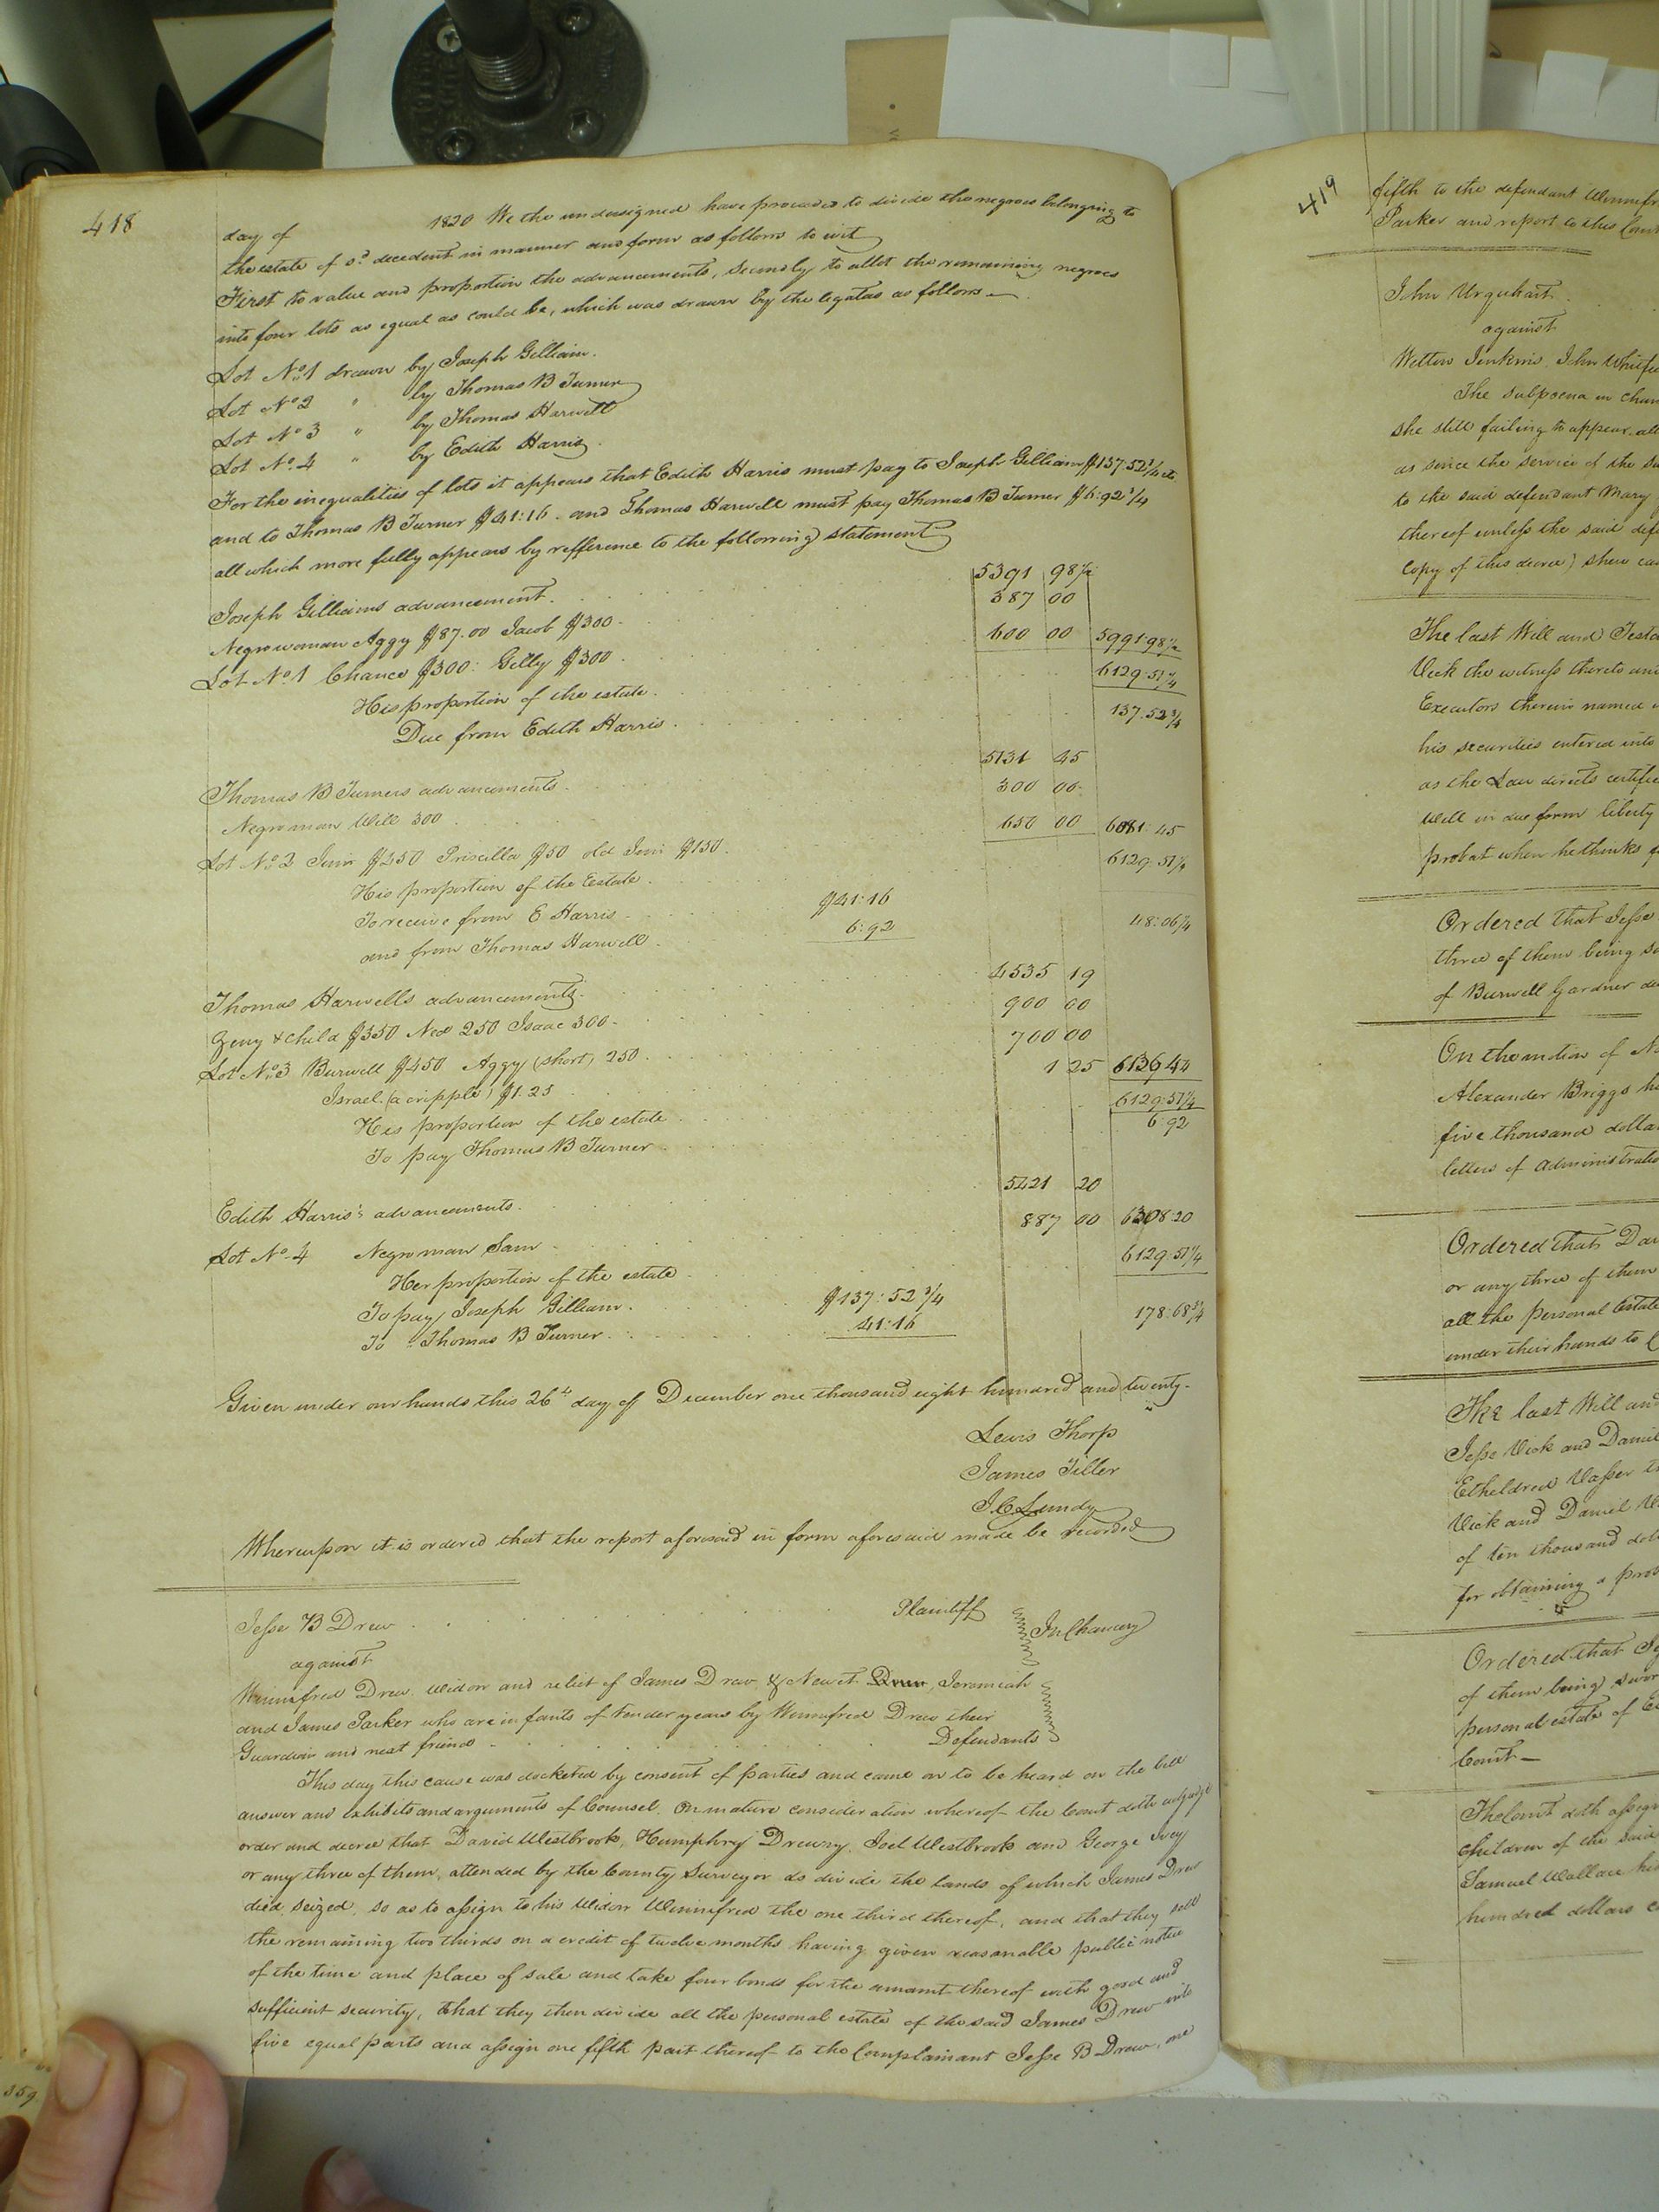 418
day of 1820 We the undersigned have proceeded to divide the negroes belonging to
the estate of sd. decedent in manner and form as follows to wit
First to value and proportion the advancements, Secondly to allot the remaining negroes
into four lots as equal as could be, which was drawn by the legatees as follows —
Lot No. 1 drawn by Joseph Gilliam.
Lot No 2 " by Thomas B Turner
Lot No 3 " by Thomas Harwell
Lot No. 4 " by Edith Harris.
For the inequalities of lots it appears that Edith Harris must pay to Joseph Gilliam $137.52 3/4 cts
and to Thomas B Turner $41:16 - and Thomas Harwell must pay Thomas B Turner $6:92 1/4
all which more fully appears by refference to the following statement
Joseph Gilliams advancement. 5391 98 1/2
Negro woman Aggy $87.00 Jacob $300 - 387 00
Lot No. 1 Chance $300: Gilly $300 . 600 00 5991.98 1/2
His proportion of the estate. 6129.51 1/4
Due from Edith Harris . 137.52 3/4
Thomas B Turners advancements. 5131 45
Negro man Will 300 . 300 00.
Lot No. 2 $450 Priscilla $50 old $150. 650 00 6081:45
His proportion of the Estate . 6129.51 1/4
To receive from E Harris . $41:16
and from Thomas Harwell . 6:92 48:06 1/4
Thomas Harwells advancements. 4535 19
& child $350 Ned 250 Isaac 300 - 900 00
Lot No. 3 Burwell $450 Aggy (short) 250 . 700 00
Israel (a cripple) $1.25 1 25 6136 44
His proportion of the estate . 6129:51 1/4
To pay Thomas B Turner . 6.92
Edith Harris's advancements. 5421 20
Lot No. 4 Negro man Sam 887 00 6308.20
Her proportion of the estate . 6129.51 1/4
To pay Joseph Gilliam . $137:52 3/4
To " Thomas B Turner . 41:16 178:68 3/4
Given under our hands this 26th day of December one thousand eight hundred and twenty -
Lewis Thorp
James Tiller
J. C. Lundy
Whereupon it is ordered that the report aforesaid in form aforesaid made be recorded
Jesse B Drew . . Plaintiff
against In Chancery
Winnifred Drew widow and relict of James Drew, & Newit Drew, Jeremiah
and James Parker who are infants of tender years by Winnifred Drew their
Guardian and next friend - Defendants
This day this cause was docketed by consent of parties and came on to be heard on the bill
answer and exhibits and arguments of Counsel. On mature consideration whereof the Court doth adjudge
order and decree that David Westbrook, Humphry Drewry, Joel Westbrook and George Ivey
or any three of them, attended by the County Surveyor do divide the lands of which James Drew
died, seized, so as to assign to his Widow Winnifred the one third thereof, and that they sell
the remaining two thirds on a credit of twelve months having given reasonable public notice
of the time and place of sale and take four bonds for the amount thereof with good and
sufficient security, that they then divide all the personal estate of the said James Drew into
five equal parts and assign one fifth part thereof to the Complainant Jesse B Drew, one
359
419
fifth to the defendant
Parker and report to this
John Urquhart
against
Jenkins, John
The subpoena in
she still failing to appear
as since the service of the
to the said defendant Mary
thereof unless the said
copy of this decree) shew
The last Will and
Vick the witness thereto
Executors therein named
his securities entered into
as the Law directs
Will in due form liberty
probat when he thinks
Ordered that Jesse
three of them being
of Burwell Gardner
On the motion of
Alexander Briggs
five thousand
letters of
Ordered that
or any three of them
all the personal Estate
under their hands to
The last Will and
Jesse Vick and
Etheldred Vasser
Vick and Daniel
of ten thousand
for obtaining a
Ordered that
of them being
personal estate of
Court —
The Court doth
children of the said
Samuel Wallace
hundred dollars